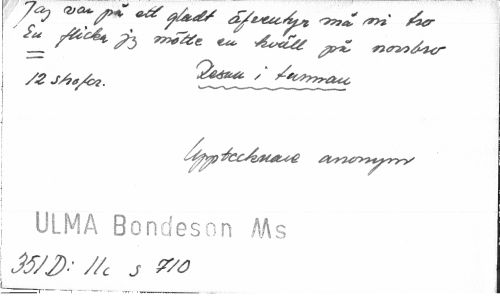 Jag var på ett gladt äfventyr må ni tro
En flicka jg mötte en kväll på norrbro
=
12 strofer. Resan i tamman
Upptecknare anonym
ULMA Bondeson Ms
351 D: 11c s 710